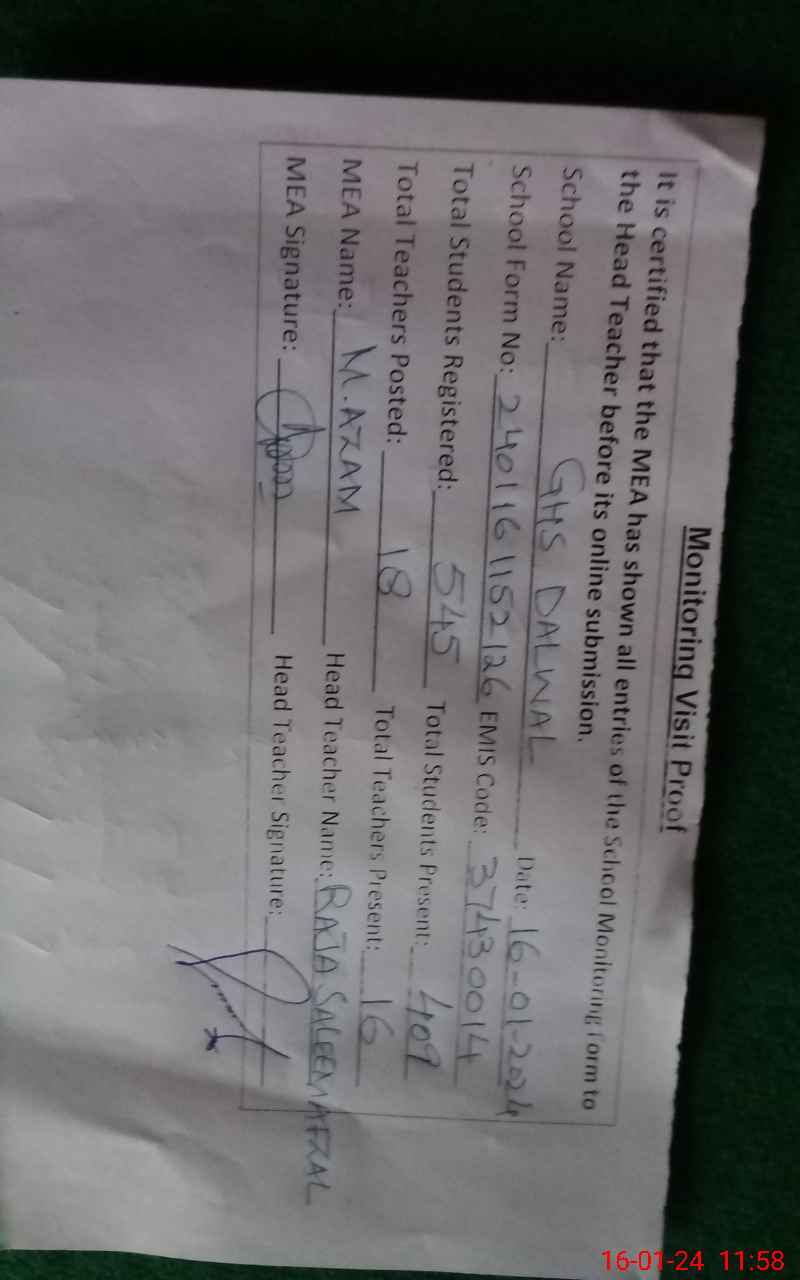 Monitoring Visit Proof
It is certified that the MEA has shown all entries of the School Monitoring Form to
the Head Teacher before its online submission.
School Name: GHS DALWAL Date: 16-01-2024
School Form No: 2401161152126 EMIS Code: 37430014
Total Students Registered: 545 Total Students Present: 409
Total Teachers Posted: 18 Total Teachers Present: 16
MEA Name: M. AZAM Head Teacher Name: RAJA SALEEM AFZAL
MEA Signature: Head Teacher Signature:
16-01-24 11:58